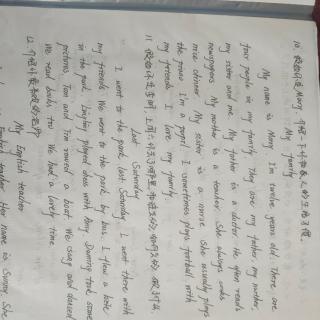 10. 假如你是Mary,介绍一下你和家人的生活习惯。
My family
My name is Mary I'm twelve years old. There are
four people in my family. They are my father, my mother,
my sister and me. My father is a doctor. He often reads
newspapers. My mother is a teacher. She always cooks
nice dinner. My sister is a nurse. She usually plays
the piano. I'm a pupil. I sometimes plays football with
my friends. I love my family.
11. 假如你是李明,上周六
Last Saturday
I went to the park last Saturday. I went there with
my friends. We went to the park by bus. I flew a kite
in the park. Lingling played chess with Amy. Daming took some
pictures. Tom and Tim rowed a boat. We sang and danced.
We read books too. We had a lovely time.
12.
My English teacher
English teacher. Her name is Sunny. She